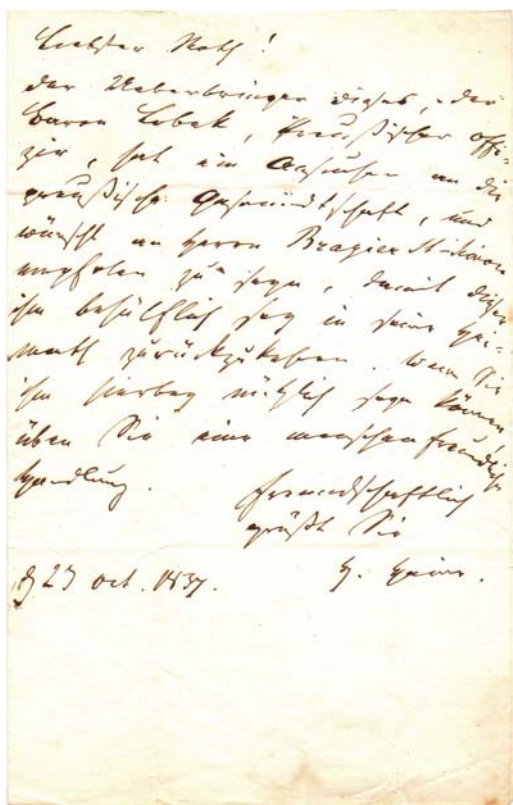 Liebster Roth!
der Ueberbringer dieses, der
Baron Lebek, Preußischer Offi-
zir, hat ein Ansuchen an die
preußische Gesandtschaft, und
wünscht an Herrn Brazier St Simon
empfolen zu seyn, damit dieser
ihm behülflich sey in seine Hei-
math zurückzukehren. Wenn Sie
ihm hierbey nützlich seyn können,
üben Sie eine menschenfreundliche
Handlung.
freundschaftlich
grüßt Sie
H. Heine.
d 23 oct. 1837.